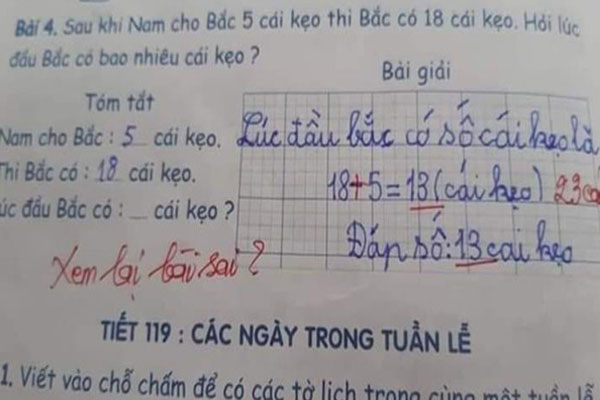 Bài 4. Sau khi Nam cho Bắc 5 cái kẹo thì Bắc có 18 cái kẹo. Hỏi lúc
đầu Bắc có bao nhiêu cái kẹo ?
Tóm tắt
Nam cho Bắc : 5 cái kẹo.
Thì Bắc có : 18 cái kẹo.
úc đầu Bắc có : __ cái kẹo ?
Bài giải
Lúc đầu bắc có số cái kẹo là
18+5=13(cái kẹo) 23cá
Đáp số:13 cái kẹo
Xem lại bài sai ?
TIẾT 119 : CÁC NGÀY TRONG TUẦN LỄ
1. Viết vào chỗ chấm để có các tờ lịch trong cùng một tuần lễ